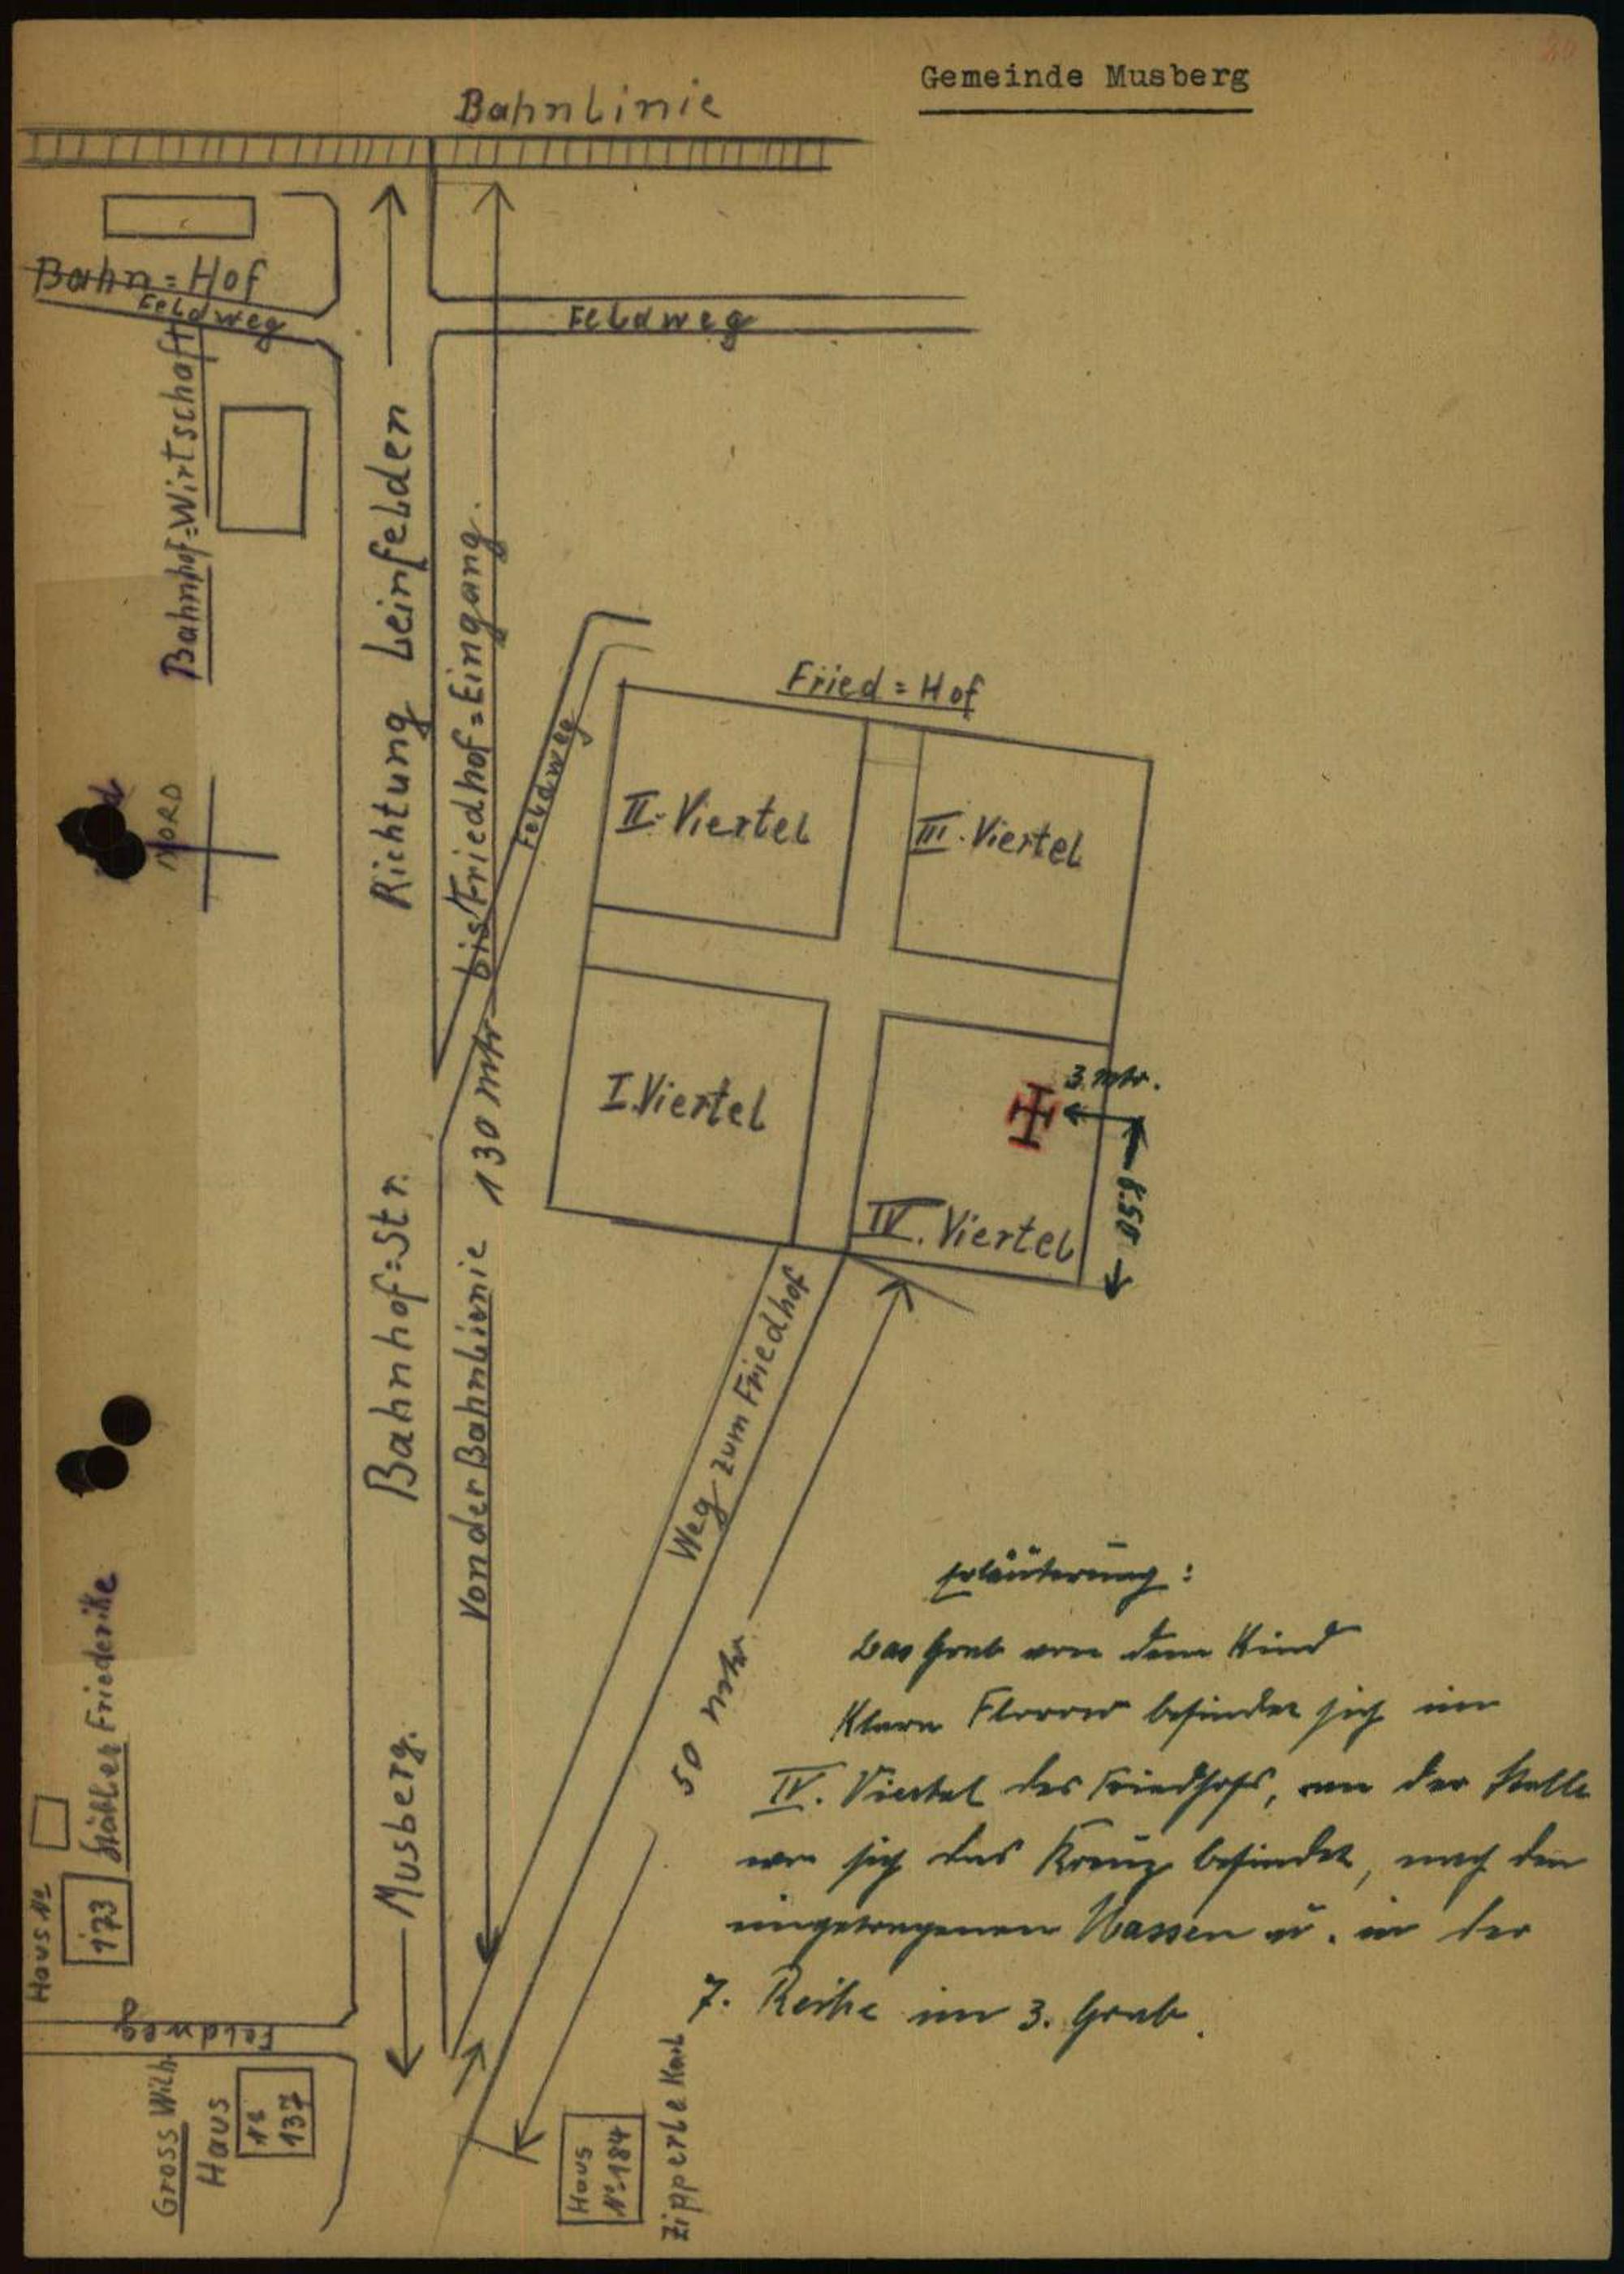 Gemeinde Musberg
Bahnlinie
Bahn=Hof
Feldweg
Feldweg
Bahnhof=Wirtschaft
Richtung Leinfelden
Von der Bahnlinie 130 mtr bis Friedhof=Eingang.
Feldweg
Fried=Hof
II. Viertel
III. Viertel
NORD
I. Viertel
3 mtr.
8.50
IV. Viertel
Bahnhof=Str.
Weg zum Friedhof
50 mtr
Musberg.
Friederike
Haus No
173
Feldweg
Gross Wilh.
Haus
No
137
Haus
No 184
Zipperle Karl
Erläuterung:
Das Grab von dem Kind
Klara befindet sich im
IV. Viertel des Friedhofs, an der Stelle
wo sich das Kreuz befindet, nach den
eingetragenen Massen u. in der
7. Reihe im 3. Grab.